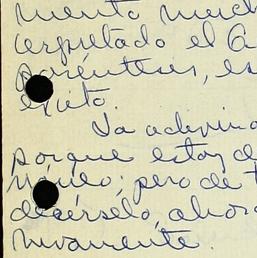 mento much
terpretado el G
paréntesis, es
éxito.
Ya adivina
porque estoy de
nuevo; pero de t
decérselo, ahora
nuvamente.